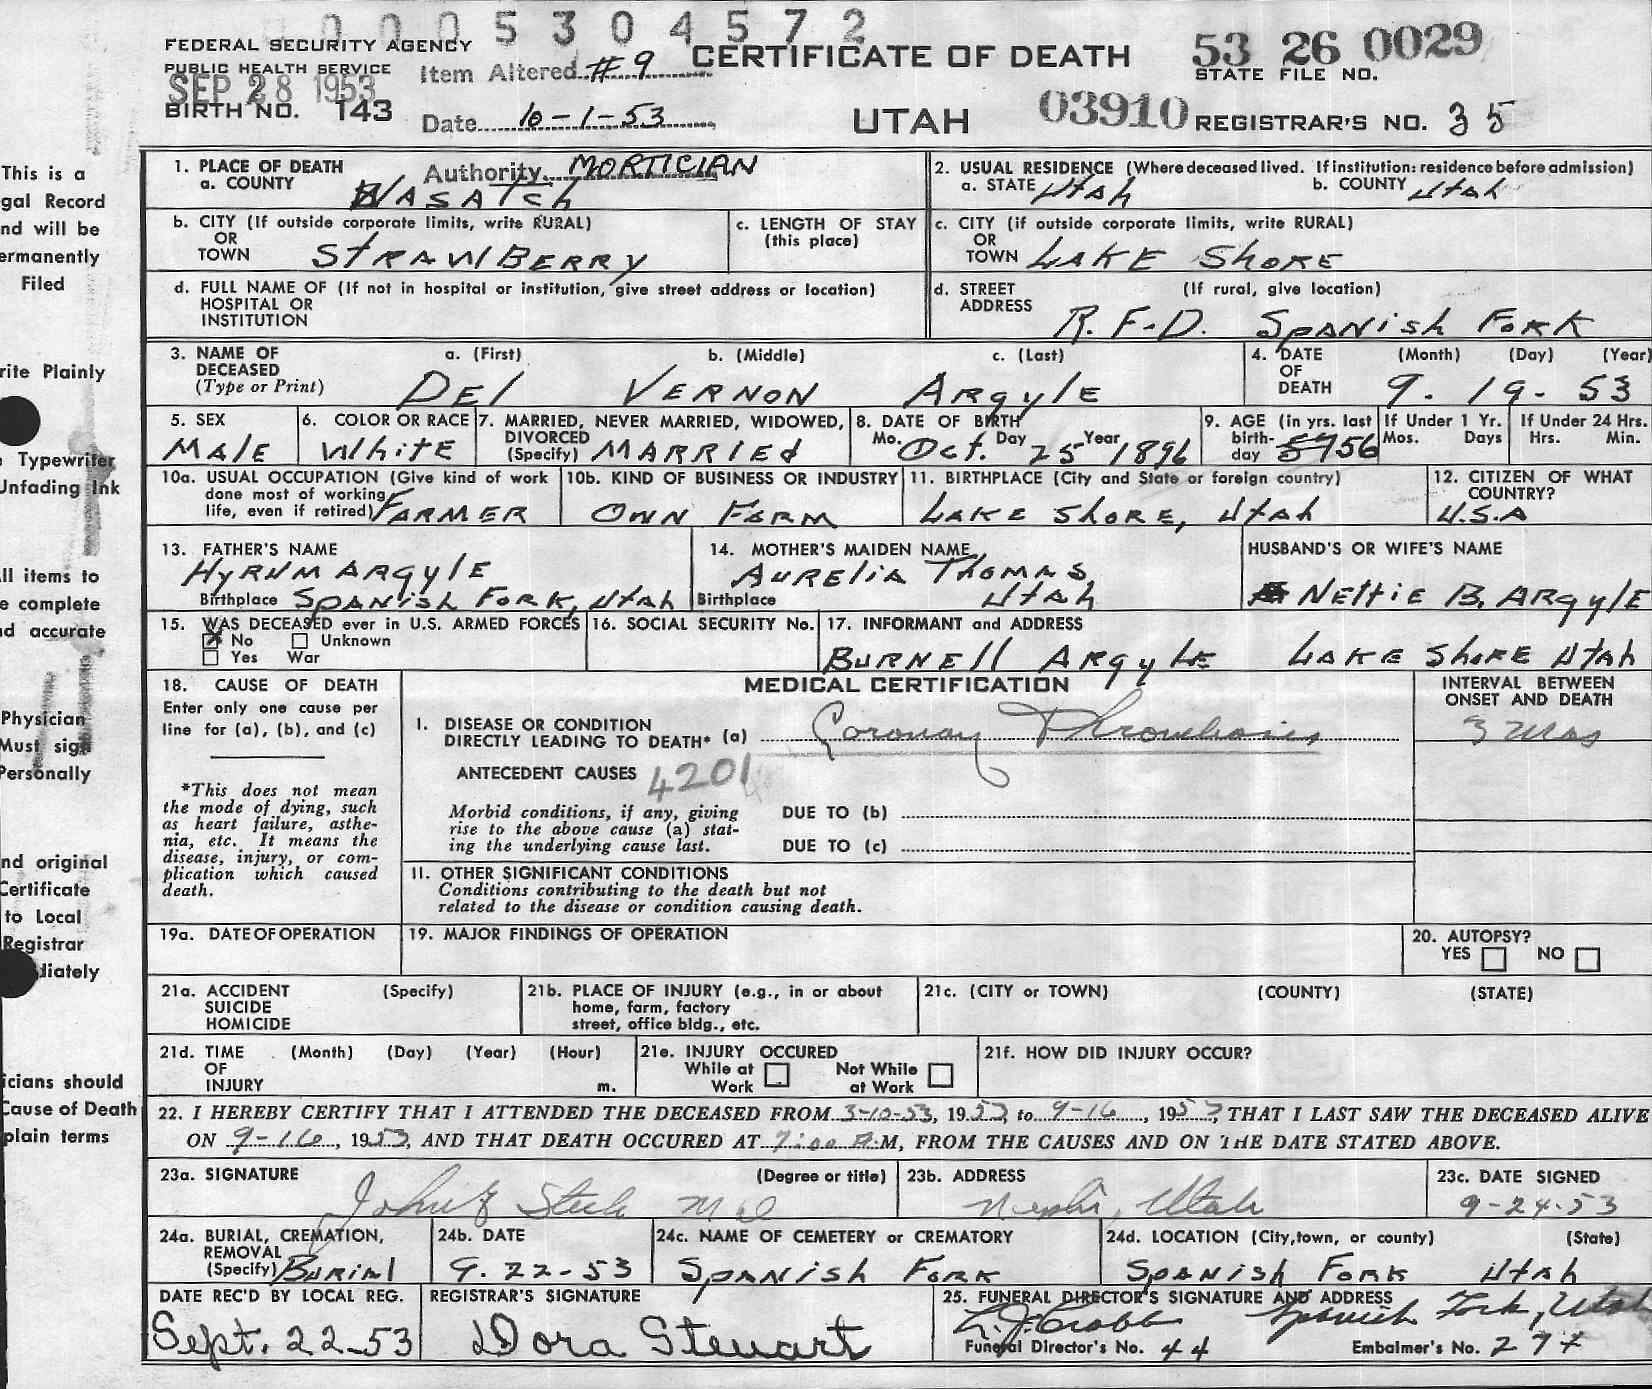 0005304572
FEDERAL SECURITY AGENCY
PUBLIC HEALTH SERVICE
SEP 28 1953
BIRTH NO. 143
Item Altered #9
Date 10-1-53
Authority MORTICIAN
CERTIFICATE OF DEATH
UTAH
53 26 0029
STATE FILE NO.
03910 REGISTRAR'S NO. 35
This is a
gal Record
nd will be
ermanently
Filed
rite Plainly
Typewriter
Unfading Ink
ll items to
e complete
nd accurate
Physician
Must sign
Personally
nd original
Certificate
to Local
Registrar
diately
icians should
Cause of Death
plain terms
1. PLACE OF DEATH
a. COUNTY WASATCH
2. USUAL RESIDENCE (Where deceased lived. If institution: residence before admission)
a. STATE Utah b. COUNTY Utah
b. CITY (If outside corporate limits, write RURAL)
OR
TOWN STRAWBERRY
c. LENGTH OF STAY
(this place)
c. CITY (if outside corporate limits, write RURAL)
OR
TOWN LAKE SHORE
d. FULL NAME OF (If not in hospital or institution, give street address or location)
HOSPITAL OR
INSTITUTION
d. STREET (If rural, give location)
ADDRESS
R.F.D. SPANISH FORK
3. NAME OF a. (First) b. (Middle) c. (Last)
DECEASED
(Type or Print) DEL VERNON ARGYLE
4. DATE (Month) (Day) (Year)
OF
DEATH 9. 19- 53
5. SEX
MALE
6. COLOR OR RACE
WHITE
7. MARRIED, NEVER MARRIED, WIDOWED,
DIVORCED
(Specify) MARRIED
8. DATE OF BIRTH
Mo. Oct. Day 25 Year 1896
9. AGE (in yrs. last
birth-
day 57 56
If Under 1 Yr.
Mos. Days
If Under 24 Hrs.
Hrs. Min.
10a. USUAL OCCUPATION (Give kind of work
done most of working
life, even if retired) FARMER
10b. KIND OF BUSINESS OR INDUSTRY
OWN FARM
11. BIRTHPLACE (City and State or foreign country)
LAKE SHORE, Utah
12. CITIZEN OF WHAT
COUNTRY?
U.S.A
13. FATHER'S NAME
HYRUM ARGYLE
Birthplace SPANISH FORK, Utah
14. MOTHER'S MAIDEN NAME
AURELIA THOMAS
Birthplace Utah
HUSBAND'S OR WIFE'S NAME
Nettie B. ARGYLE
15. WAS DECEASED ever in U.S. ARMED FORCES
No Unknown
Yes War
16. SOCIAL SECURITY No.
17. INFORMANT and ADDRESS
BURNELL ARGYLE LAKE SHORE Utah
18. CAUSE OF DEATH
Enter only one cause per
line for (a), (b), and (c)
*This does not mean
the mode of dying, such
as heart failure, asthe-
nia, etc. It means the
disease, injury, or com-
plication which caused
death.
MEDICAL CERTIFICATION
INTERVAL BETWEEN
ONSET AND DEATH
I. DISEASE OR CONDITION
DIRECTLY LEADING TO DEATH* (a) Coronary Thrombosis 3 mos
ANTECEDENT CAUSES 4201
Morbid conditions, if any, giving
rise to the above cause (a) stat-
ing the underlying cause last.
DUE TO (b)
DUE TO (c)
11. OTHER SIGNIFICANT CONDITIONS
Conditions contributing to the death but not
related to the disease or condition causing death.
19a. DATE OF OPERATION
19. MAJOR FINDINGS OF OPERATION
20. AUTOPSY?
YES NO
21a. ACCIDENT (Specify)
SUICIDE
HOMICIDE
21b. PLACE OF INJURY (e.g., in or about
home, farm, factory
street, office bldg., etc.
21c. (CITY or TOWN) (COUNTY) (STATE)
21d. TIME (Month) (Day) (Year) (Hour)
OF
INJURY m.
21e. INJURY OCCURED
While at Work
Not While at Work
21f. HOW DID INJURY OCCUR?
22. I HEREBY CERTIFY THAT I ATTENDED THE DECEASED FROM 3-10-53, 1953, to 9-16, 1953, THAT I LAST SAW THE DECEASED ALIVE
ON 9-16, 1953, AND THAT DEATH OCCURED AT 7:00 A.M, FROM THE CAUSES AND ON THE DATE STATED ABOVE.
23a. SIGNATURE (Degree or title)
Steele MD
23b. ADDRESS
Nephi, Utah
23c. DATE SIGNED
9-24-53
24a. BURIAL, CREMATION,
REMOVAL
(Specify) BURIAL
24b. DATE
9. 22-53
24c. NAME OF CEMETERY or CREMATORY
SPANISH FORK
24d. LOCATION (City, town, or county) (State)
SPANISH FORK Utah
DATE REC'D BY LOCAL REG.
Sept. 22-53
REGISTRAR'S SIGNATURE
Dora Stewart
25. FUNERAL DIRECTOR'S SIGNATURE AND ADDRESS
Spanish Fork, Utah
Funeral Director's No. 44 Embalmer's No.